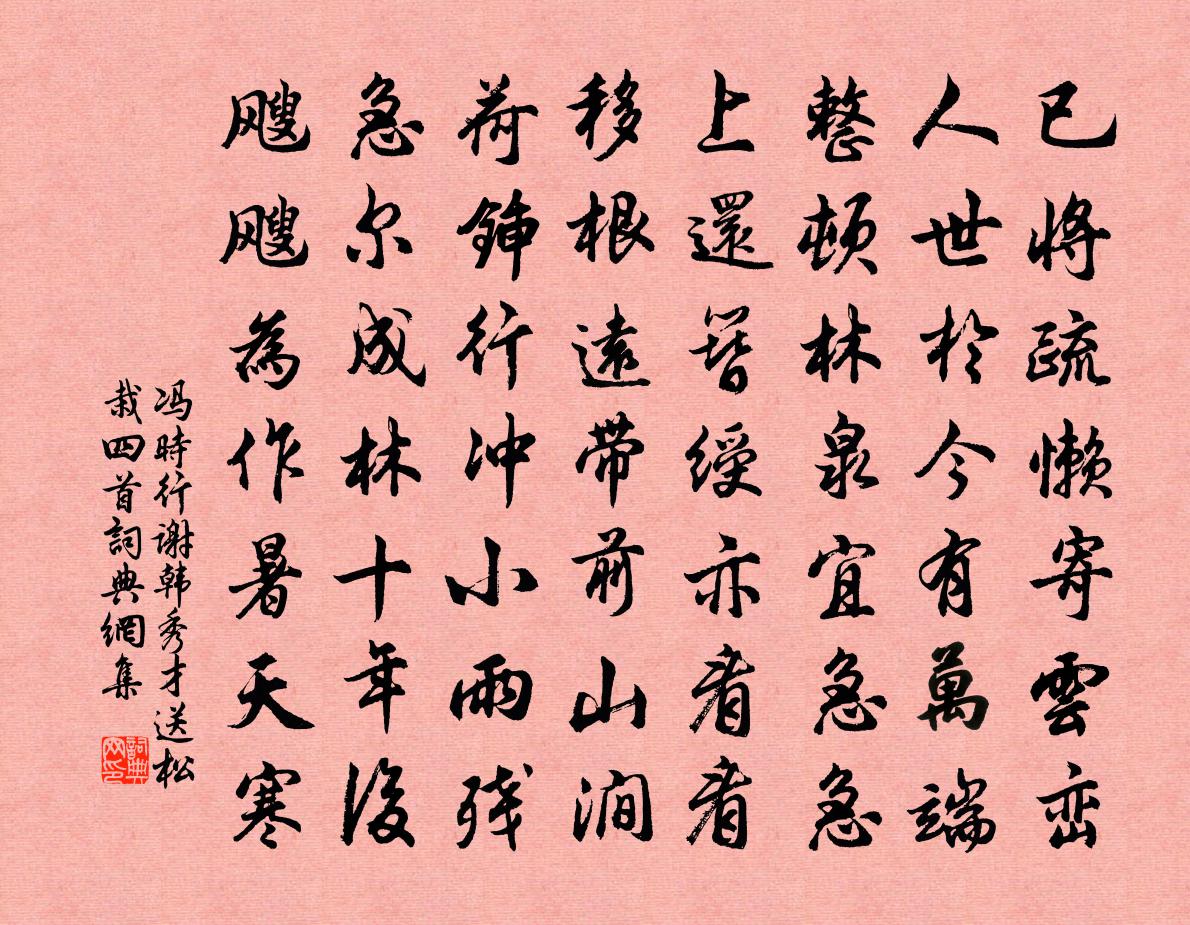 已將疏懶寄雲峦
人世於今有萬端
整頓林泉宜急急
上還簪綬亦看看
移根遠带前山澗
荷鍤行冲小雨残
急尔成林十年後
颼颼為作暑天寒
冯時行谢韩秀才送松
栽四首詞典網集
詞典网印